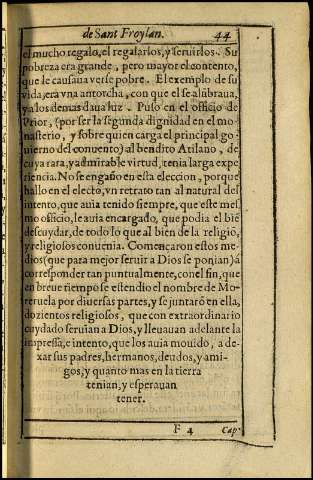 de Sant Froylan. 44
el mucho regalo, el regalarlos, y seruirlos. Su
pobreza era grande, pero mayor el contento,
que le causaua verse pobre. El exemplo de su
vida, era vna antorcha, con que el se alũbraua,
y a los demas daua luz. Puso en el officio de
Prior, (por ser la segunda dignidad en el mo-
nasterio, y sobre quien carga el principal go-
uierno del conuento) al bendito Atilano, de
cuya rara, y admirable virtud, tenia larga expe
riencia. No se engaño en esta eleccion, porque
hallo en el electo, vn retrato tan al natural del
intento, que auia tenido siempre, que este mes
mo officio, le auia encargado, que podia el biẽ
descuydar, de todo lo que al bien de la religiõ,
y religiosos conuenia. Comencaron estos me-
dios (que para mejor seruir a Dios se ponian) á
corresponder tan puntualmente, con el fin, que
en breue tiempo se estendio el nombre de Mo-
reruela por diuersas partes, y se juntarõ en ella,
dozientos religiosos, que con extraordinario
cuydado seruian a Dios, y lleuauan adelante la
impressa, e intento, que los auia mouido, a de-
xar sus padres, hermanos, deudos, y ami-
gos, y quanto mas en la tierra
tenian, y esperauan
tener.
F 4 Cap.